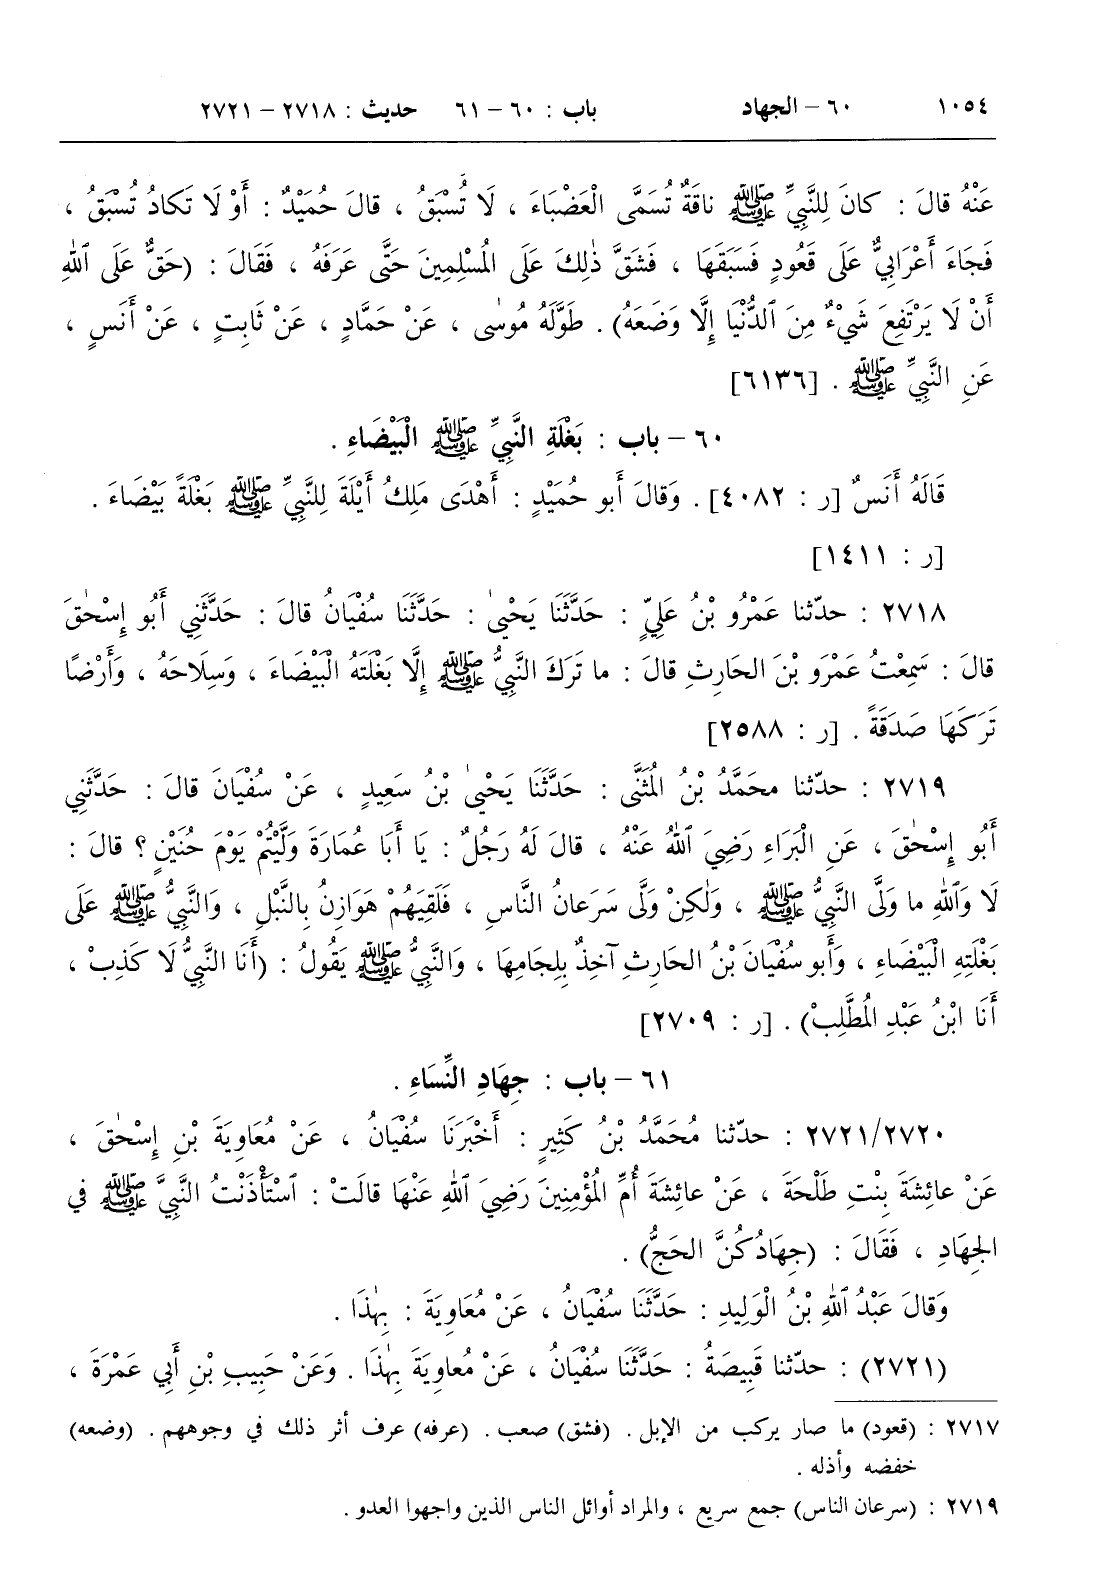 ١٠٥٤ ٦٠ – الجهاد باب : ٦٠ – ٦١ حديث : ٢٧١٨ – ٢٧٢١
عَنْهُ قالَ : كانَ لِلنَّبِيِّ ﷺ ناقَةٌ تُسَمَّى الْعَضْبَاءَ ، لَا تُسْبَقُ ، قالَ حُمَيْدٌ : أَوْ لَا تَكادُ تُسْبَقُ ،
فَجَاءَ أَعْرَابِيٌّ عَلَى قَعُودٍ فَسَبَقَهَا ، فَشَقَّ ذٰلِكَ عَلَى الْمُسْلِمِينَ حَتَّى عَرَفَهُ ، فَقَالَ : (حَقٌّ عَلَى ٱللهِ
أَنْ لَا يَرْتَفِعَ شَيْءٌ مِنَ ٱلدُّنْيَا إِلَّا وَضَعَهُ) . طَوَّلَهُ مُوسٰى ، عَنْ حَمَّادٍ ، عَنْ ثَابِتٍ ، عَنْ أَنَسٍ ،
عَنِ النَّبِيِّ ﷺ . [٦١٣٦]
٦٠ – باب : بَغْلَةِ النَّبِيِّ ﷺ الْبَيْضَاءِ .
قَالَهُ أَنَسٌ [ر : ٤٠٨٢] . وَقالَ أَبو حُمَيْدٍ : أَهْدَى مَلِكُ أَيْلَةَ لِلنَّبِيِّ ﷺ بَغْلَةً بَيْضَاءَ .
[ر : ١٤١١]
٢٧١٨ : حدّثنا عَمْرُو بْنُ عَلِيٍّ : حَدَّثَنَا يَحْيىٰ : حَدَّثَنَا سُفْيَانُ قالَ : حَدَّثَنِي أَبُو إِسْحٰقَ
قالَ : سَمِعْتُ عَمْرَو بْنَ الحَارِثِ قالَ : ما تَرَكَ النَّبِيُّ ﷺ إِلَّا بَغْلَتَهُ الْبَيْضَاءَ ، وَسِلَاحَهُ ، وَأَرْضًا
تَرَكَهَا صَدَقَةً . [ر : ٢٥٨٨]
٢٧١٩ : حدّثنا محَمَّدُ بْنُ الْمُثَنَّى : حَدَّثَنَا يَحْيىٰ بْنُ سَعِيدٍ ، عَنْ سُفْيَانَ قالَ : حَدَّثَنِي
أَبُو إِسْحٰقَ ، عَنِ الْبَرَاءِ رَضِيَ ٱللهُ عَنْهُ ، قالَ لَهُ رَجُلٌ : يَا أَبَا عُمَارَةَ وَلَّيْتُمْ يَوْمَ حُنَيْنٍ ؟ قالَ :
لَا وَٱللهِ ما وَلَّى النَّبِيُّ ﷺ ، وَلٰكِنْ وَلَّى سَرَعانُ النَّاسِ ، فَلَقِيَهُمْ هَوَازِنُ بِالنَّبْلِ ، وَالنَّبِيُّ ﷺ عَلَى
بَغْلَتِهِ الْبَيْضَاءِ ، وَأَبو سُفْيَانَ بْنُ الحَارِثِ آخِذٌ بِلِجَامِهَا ، وَالنَّبِيُّ ﷺ يَقُولُ : (أَنَا النَّبِيُّ لَا كَذِبْ ،
أَنَا ابْنُ عَبْدِ الْمُطَّلِبْ) . [ر : ٢٧٠٩]
٦١ – باب : جِهَادِ النِّسَاءِ .
٢٧٢١/٢٧٢٠ : حدّثنا مُحَمَّدُ بْنُ كَثِيرٍ : أَخْبَرَنَا سُفْيَانُ ، عَنْ مُعَاوِيَةَ بْنِ إِسْحٰقَ ،
عَنْ عائِشَةَ بِنْتِ طَلْحَةَ ، عَنْ عائِشَةَ أُمِّ الْمُؤْمِنِينَ رَضِيَ ٱللهُ عَنْهَا قالَتْ : ٱسْتَأْذَنْتُ النَّبِيَّ ﷺ في
الجِهَادِ ، فَقَالَ : (جِهَادُكُنَّ الحَجُّ) .
وَقالَ عَبْدُ ٱللهِ بْنُ الْوَلِيدِ : حَدَّثَنَا سُفْيَانُ ، عَنْ مُعَاوِيَةَ : بِهٰذَا .
(٢٧٢١) : حدّثنا قَبِيصَةُ : حَدَّثَنَا سُفْيَانُ ، عَنْ مُعاوِيَةَ بِهٰذَا . وَعَنْ حَبِيبِ بْنِ أَبِي عَمْرَةَ ،
٢٧١٧ : (قعود) ما صار يركب من الإبل . (فشق) صعب . (عرفه) عرف أثر ذلك في وجوههم . (وضعه)
خفضه وأذله .
٢٧١٩ : (سرعان الناس) جمع سريع ، والمراد أوائل الناس الذين واجهوا العدو .